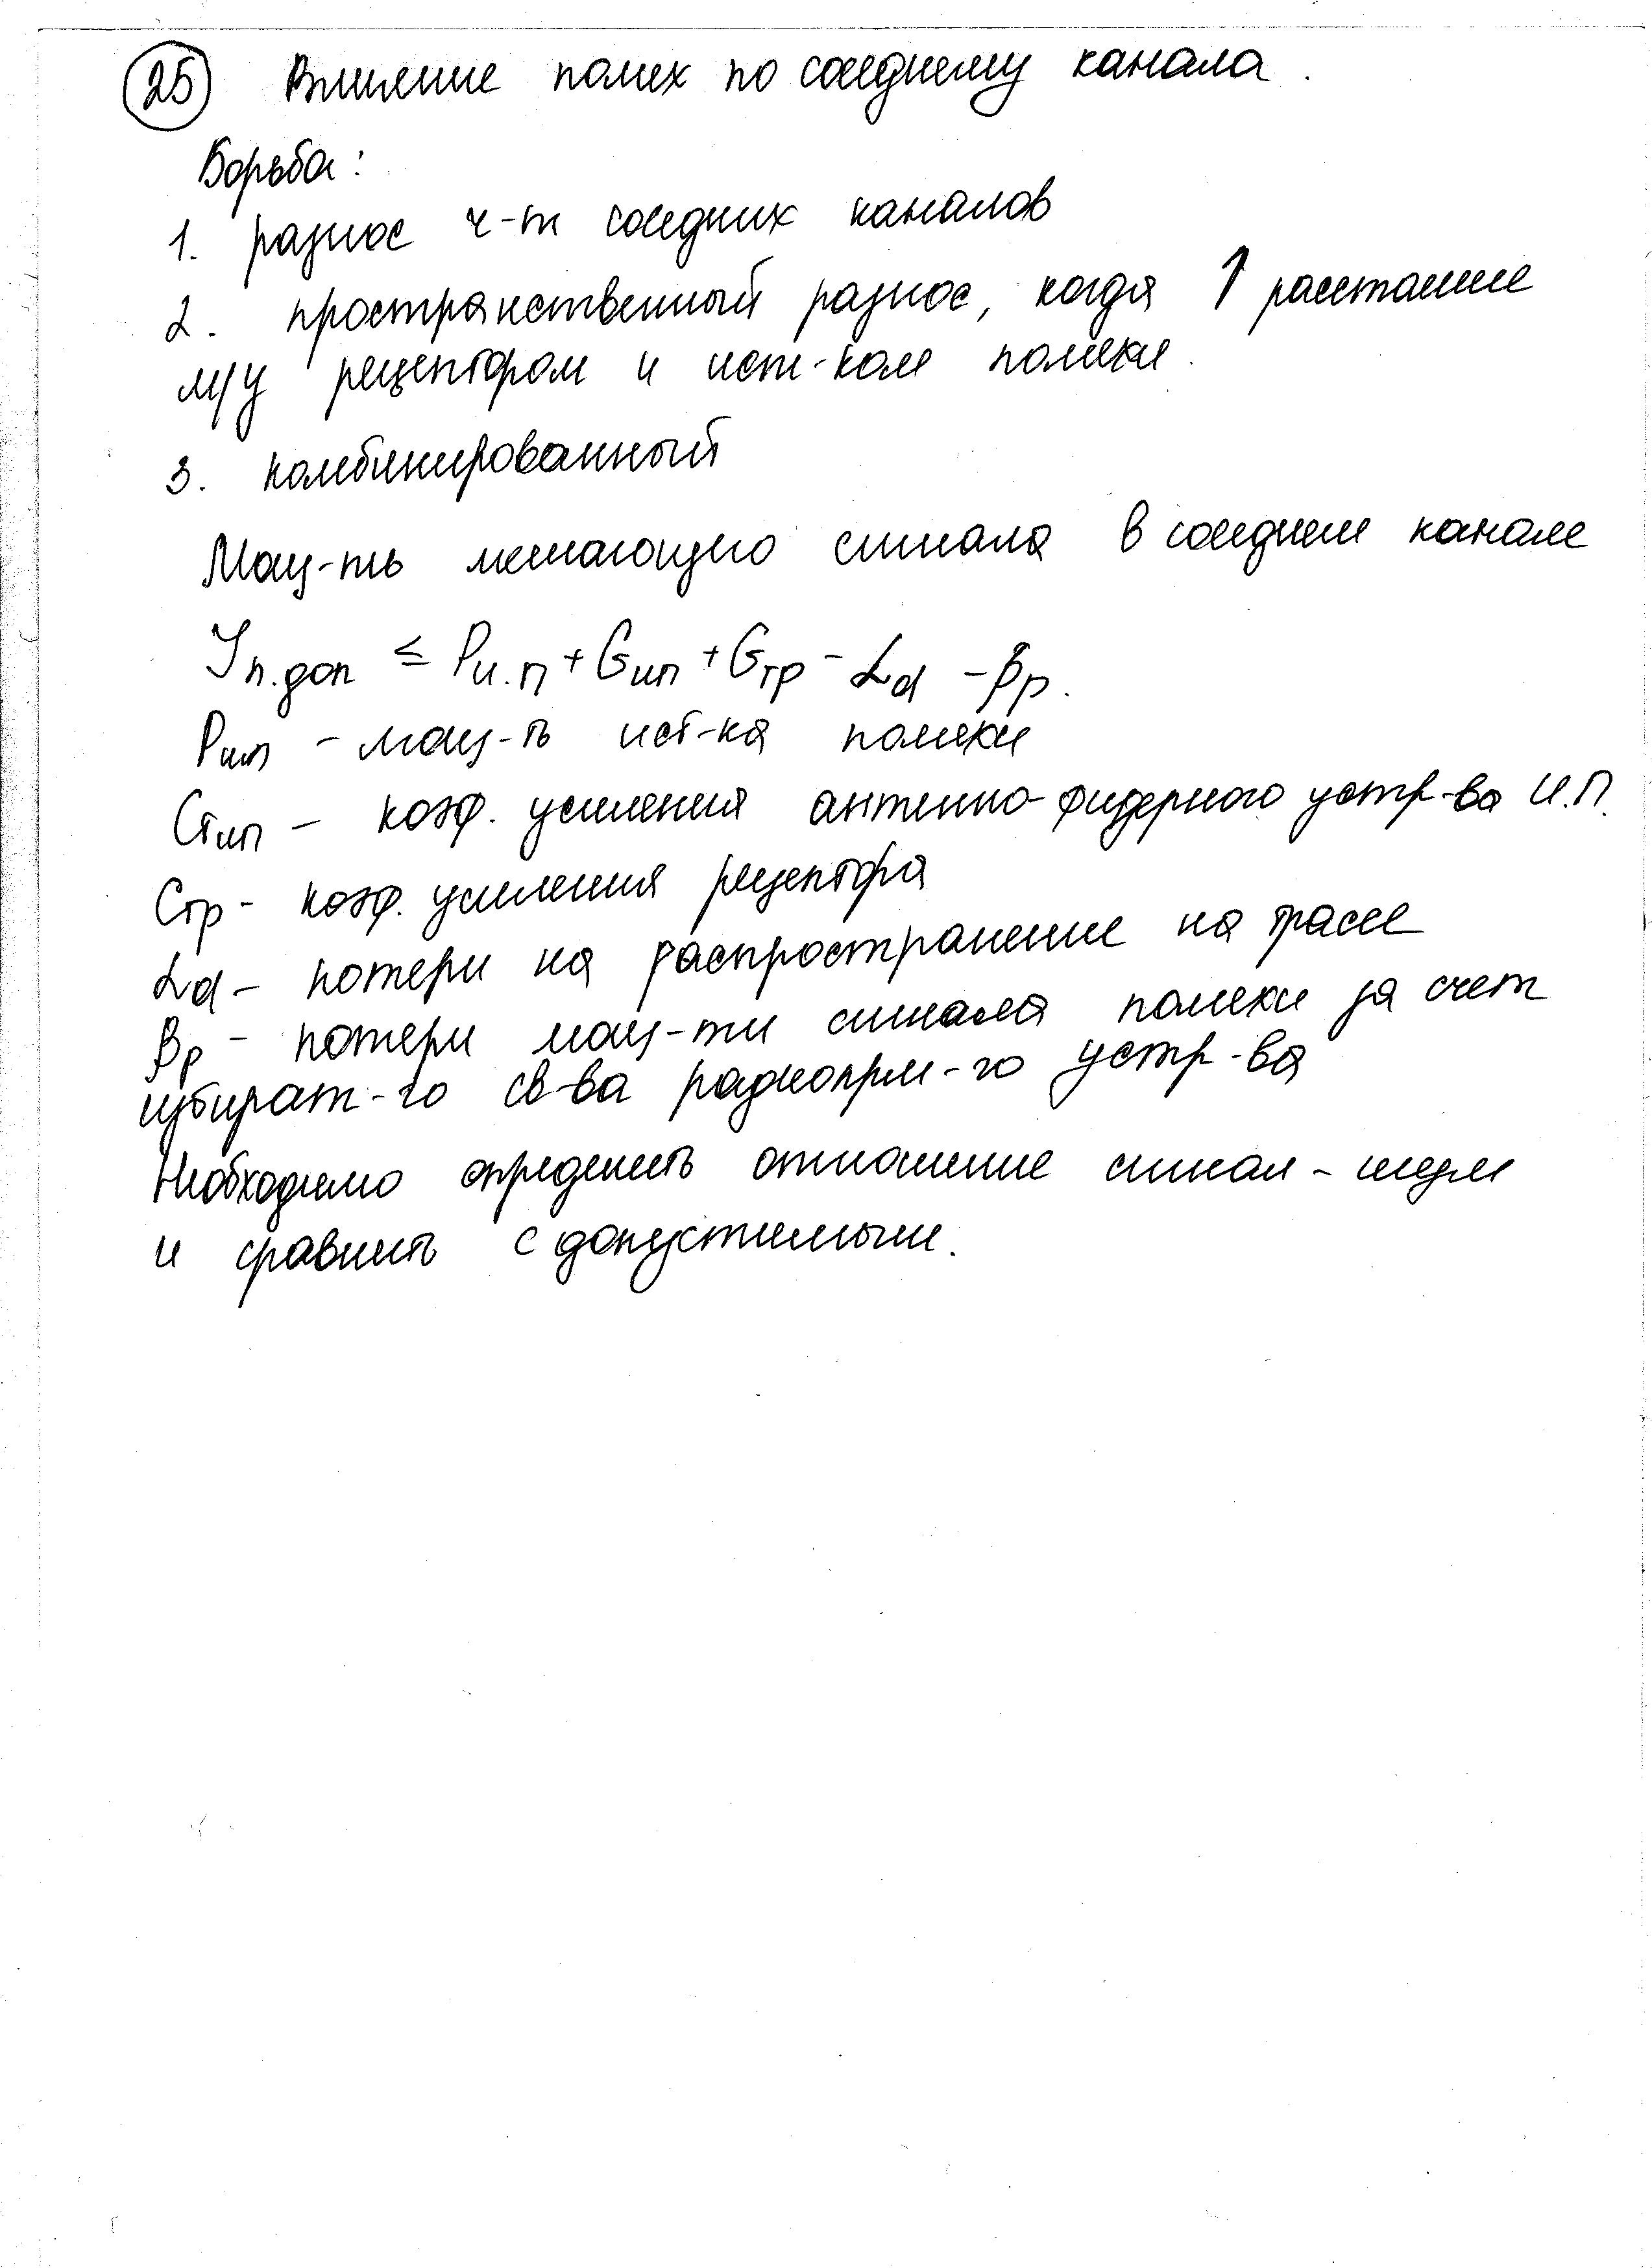 25 Влияние помех по соседнему канала.
Борьба:
1. разнос ч-т соседних каналов
2. пространственный разнос, когда ↑ расстояние
м/у рецептором и ист-ком помехи.
3. комбинированный
Мощ-ть мешающего сигнала в соседнем канале
Jп.доп ≤ Pи.п + Gип + Gр - Ld - βр.
Pип - мощ-ть ист-ка помехи
Gип - коэф. усиления антенно-фидерного устр-ва И.П.
Gр - коэф. усиления рецептора
Ld - потери на распространение на трассе
βр - потери мощ-ти сигнала помехи за счет
избират-го св-ва радиоприм-го устр-ва
Необходимо определить отношение сигнал - шум
и сравнить с допустимым.